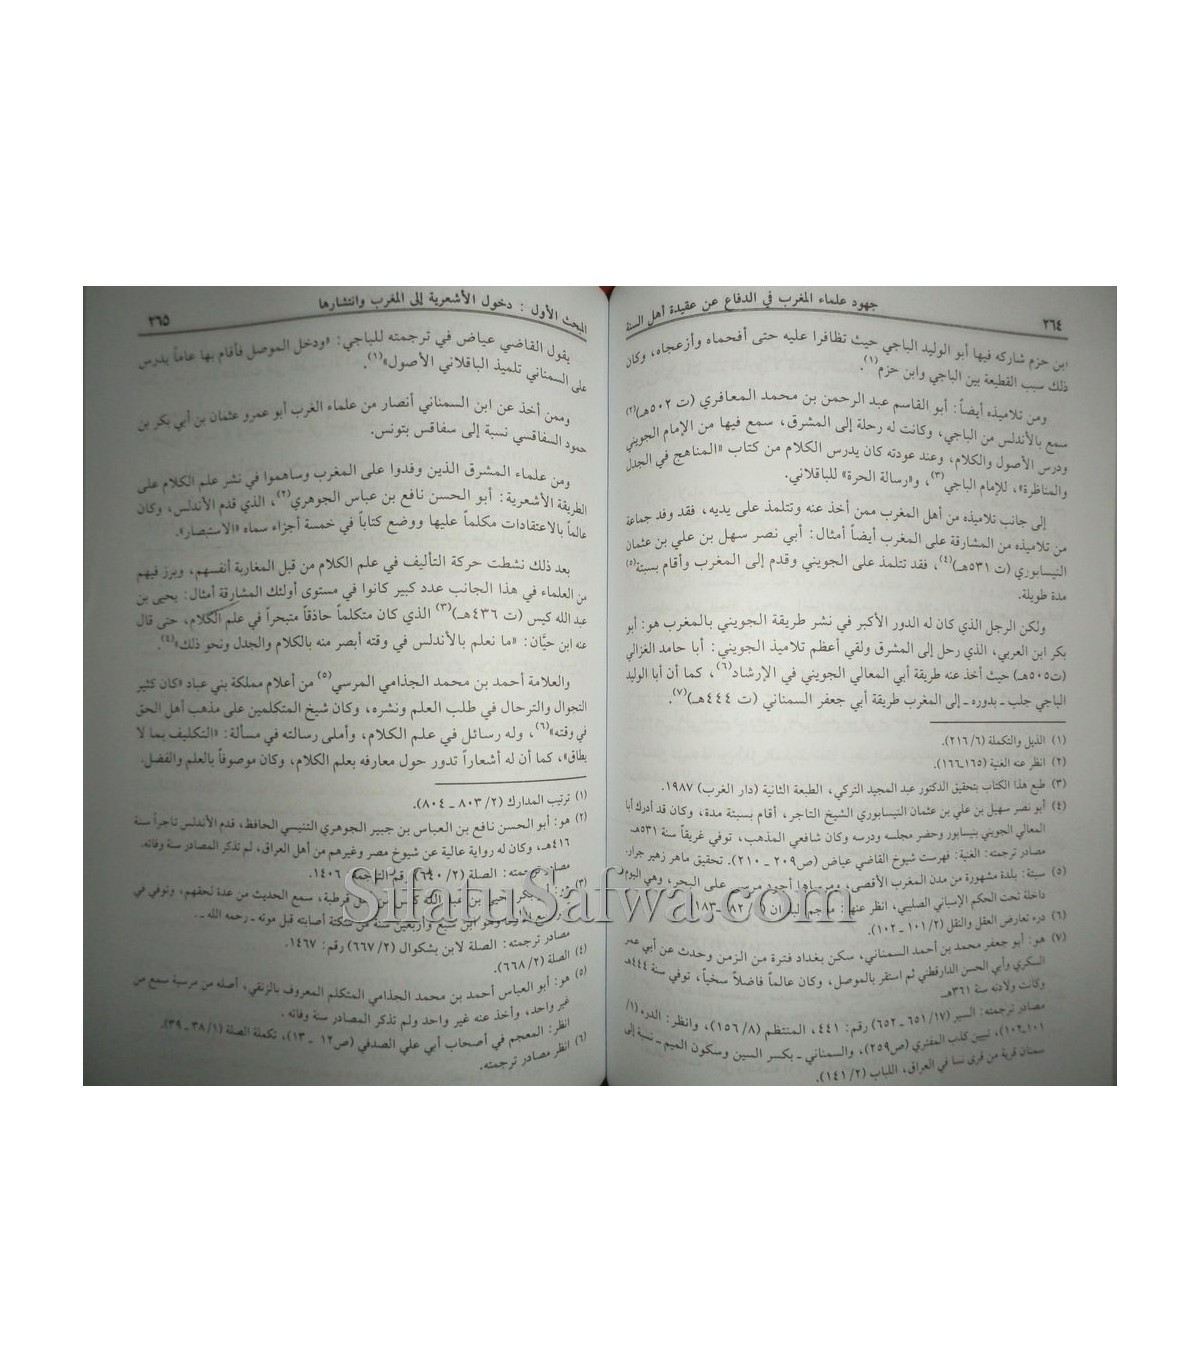 ٢٦٤
جهود علماء المغرب في الدفاع عن عقيدة أهل السنة
ابن حزم شاركه فيها أبو الوليد الباجي حيث تظافرا عليه حتى أفحماه وأزعجاه، وكان
ذلك سبب القطيعة بين الباجي وابن حزم(١).
ومن تلاميذه أيضاً: أبو القاسم عبد الرحمن بن محمد المعافري (ت ٥٠٢هـ)(٢)
سمع بالأندلس من الباجي، وكانت له رحلة إلى المشرق، سمع فيها من الإمام الجويني
ودرس الأصول والكلام، وعند عودته كان يدرس الكلام من كتاب «المناهج في الجدل
والمناظرة»، للإمام الباجي(٣)، و«رسالة الحرة» للباقلاني.
إلى جانب تلاميذه من أهل المغرب ممن أخذ عنه وتتلمذ على يديه، فقد وفد جماعة
من تلاميذه من المشارقة على المغرب أيضاً أمثال: أبي نصر سهل بن علي بن عثمان
النيسابوري (ت ٥٣١هـ)(٤)، فقد تتلمذ على الجويني وقدم إلى المغرب وأقام بسبتة(٥)
مدة طويلة.
ولكن الرجل الذي كان له الدور الأكبر في نشر طريقة الجويني بالمغرب هو: أبو
بكر ابن العربي، الذي رحل إلى المشرق ولقي أعظم تلاميذ الجويني: أبا حامد الغزالي
(ت٥٠٥هـ) حيث أخذ عنه طريقة أبي المعالي الجويني في الإرشاد(٦)، كما أن أبا الوليد
الباجي جلب ـ بدوره ـ إلى المغرب طريقة أبي جعفر السمناني (ت ٤٤٤هـ)(٧).
(١) الذيل والتكملة (٢١٦/٦).
(٢) انظر عنه الغنية (١٦٥ـ١٦٦).
(٣) طبع هذا الكتاب بتحقيق الدكتور عبد المجيد التركي، الطبعة الثانية (دار الغرب) ١٩٨٧.
(٤) أبو نصر سهيل بن علي بن عثمان النيسابوري الشيخ التاجر، أقام بسبتة مدة، وكان قد أدرك أبا
المعالي الجويني بنيسابور وحضر مجلسه ودرسه وكان شافعي المذهب، توفي غريقاً سنة ٥٣١هـ.
مصادر ترجمته: الغنية: فهرست شيوخ القاضي عياض (ص٢٠٩ ـ ٢١٠). تحقيق ماهر زهير جرار.
(٥) سبتة: بلدة مشهورة من مدن المغرب الأقصى، ومرساها أجود مرسى على البحر، وهي اليوم
داخلة تحت الحكم الإسباني الصليبي، انظر عنها: معجم البلدان
(٦) درء تعارض العقل والنقل (٢/ ١٠١ ـ ١٠٢).
(٧) هو: أبو جعفر محمد بن أحمد السمناني، سكن بغداد فترة من الزمن وحدث عن أبي عمر
السكري وأبي الحسن الدارقطني ثم استقر بالموصل، وكان عالماً فاضلاً سخياً، توفي سنة ٤٤٤هـ
وكانت ولادته سنة ٣٦١هـ
مصادر ترجمته: السير (١٧/ ٦٥١ ـ ٦٥٢) رقم: ٤٤١، المنتظم (٨/ ١٥٦)، وانظر: الدرء (١/
١٠١ـ١٠٢)، تبيين كذب المفتري (ص٢٥٩)، والسمناني ـ بكسر السين وسكون الميم ـ نسبة إلى
سمنان قرية من قرى نسا في العراق، اللباب (٢/ ١٤١).
المبحث الأول : دخول الأشعرية إلى المغرب وانتشارها
٢٦٥
يقول القاضي عياض في ترجمته للباجي: «ودخل الموصل فأقام بها عاماً يدرس
على السمناني تلميذ الباقلاني الأصول»(١).
وممن أخذ عن ابن السمناني أنصار من علماء الغرب أبو عمرو عثمان بن أبي بكر بن
حمود السفاقسي نسبة إلى سفاقس بتونس.
ومن علماء المشرق الذين وفدوا على المغرب وساهموا في نشر علم الكلام على
الطريقة الأشعرية: أبو الحسن نافع بن عباس الجوهري(٢)، الذي قدم الأندلس، وكان
عالماً بالاعتقادات مكلماً عليها ووضع كتاباً في خمسة أجزاء سماه «الاستبصار».
بعد ذلك نشطت حركة التأليف في علم الكلام من قبل المغاربة أنفسهم، وبرز فيهم
من العلماء في هذا الجانب عدد كبير كانوا في مستوى أولئك المشارقة أمثال: يحيى بن
عبد الله كيس (ت ٤٣٦هـ)(٣) الذي كان متكلماً حاذقاً متبحراً في علم الكلام، حتى قال
عنه ابن حيَّان: «ما نعلم بالأندلس في وقته أبصر منه بالكلام والجدل ونحو ذلك»(٤).
والعلامة أحمد بن محمد الجذامي المرسي(٥) من أعلام مملكة بني عباد «كان كثير
التجوال والترحال في طلب العلم ونشره، وكان شيخ المتكلمين على مذهب أهل الحق
في وقته»(٦)، وله رسائل في علم الكلام، وأملى رسالته في مسألة: «التكليف بما لا
يطاق»، كما أن له أشعاراً تدور حول معارفه بعلم الكلام، وكان موصوفاً بالعلم والفضل.
(١) ترتيب المدارك (٢/ ٨٠٣ ـ ٨٠٤).
(٢) هو: أبو الحسن نافع بن العباس بن جبير الجوهري التنيسي الحافظ، قدم الأندلس تاجراً سنة
٤١٦هـ، وكان له رواية عالية عن شيوخ مصر وغيرهم من أهل العراق، لم تذكر المصادر سنة وفاته.
مصادر ترجمته: الصلة (٢/ ٦٤٠) رقم الترجمة: ١٤٠٦.
(٣) هو: أبو بكر يحيى بن عبد الله كيس من أهل قرطبة، سمع الحديث من عدة لحقهم، وتوفي في
وهو ابن سبع وأربعين سنة من سكتة أصابته قبل موته ـ رحمه الله ـ.
مصادر ترجمته: الصلة لابن بشكوال (٢/ ٦٦٧) رقم: ١٤٦٧.
(٤) الصلة (٢/ ٦٦٨).
(٥) هو: أبو العباس أحمد بن محمد الجذامي المتكلم المعروف بالزنقي، أصله من مرسية سمع من
غير واحد، وأخذ عنه غير واحد ولم تذكر المصادر سنة وفاته .
انظر: المعجم في أصحاب أبي علي الصدفي (ص١٢ ـ ١٣)، تكملة الصلة (١/ ٣٨ ـ ٣٩).
(٦) انظر مصادر ترجمته.
SifatuSafwa.com